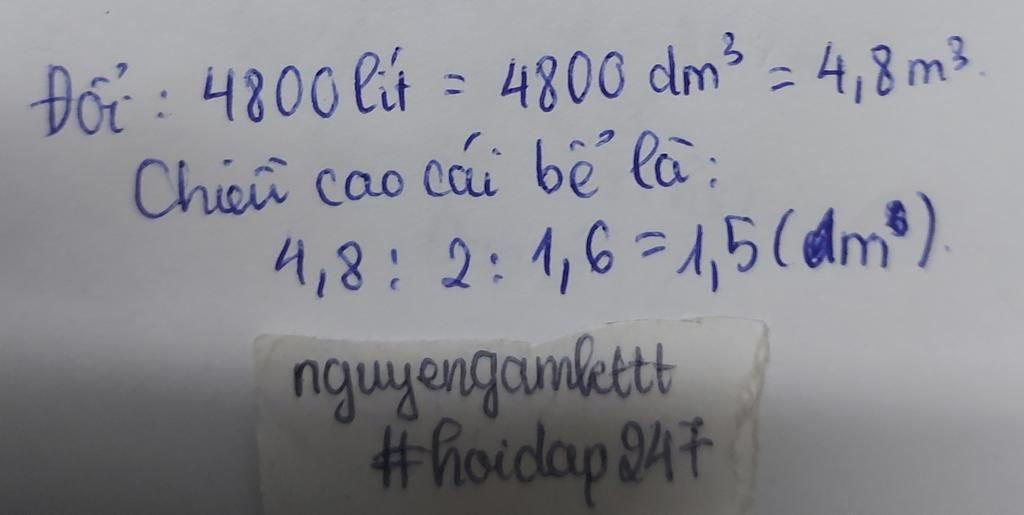 Đổi: 4800 lít = 4800 dm³ = 4,8 m³.
Chiều cao cái bể là:
4,8 : 2 : 1,6 = 1,5 (dm³).
nguyengamkttt
#hoidap247